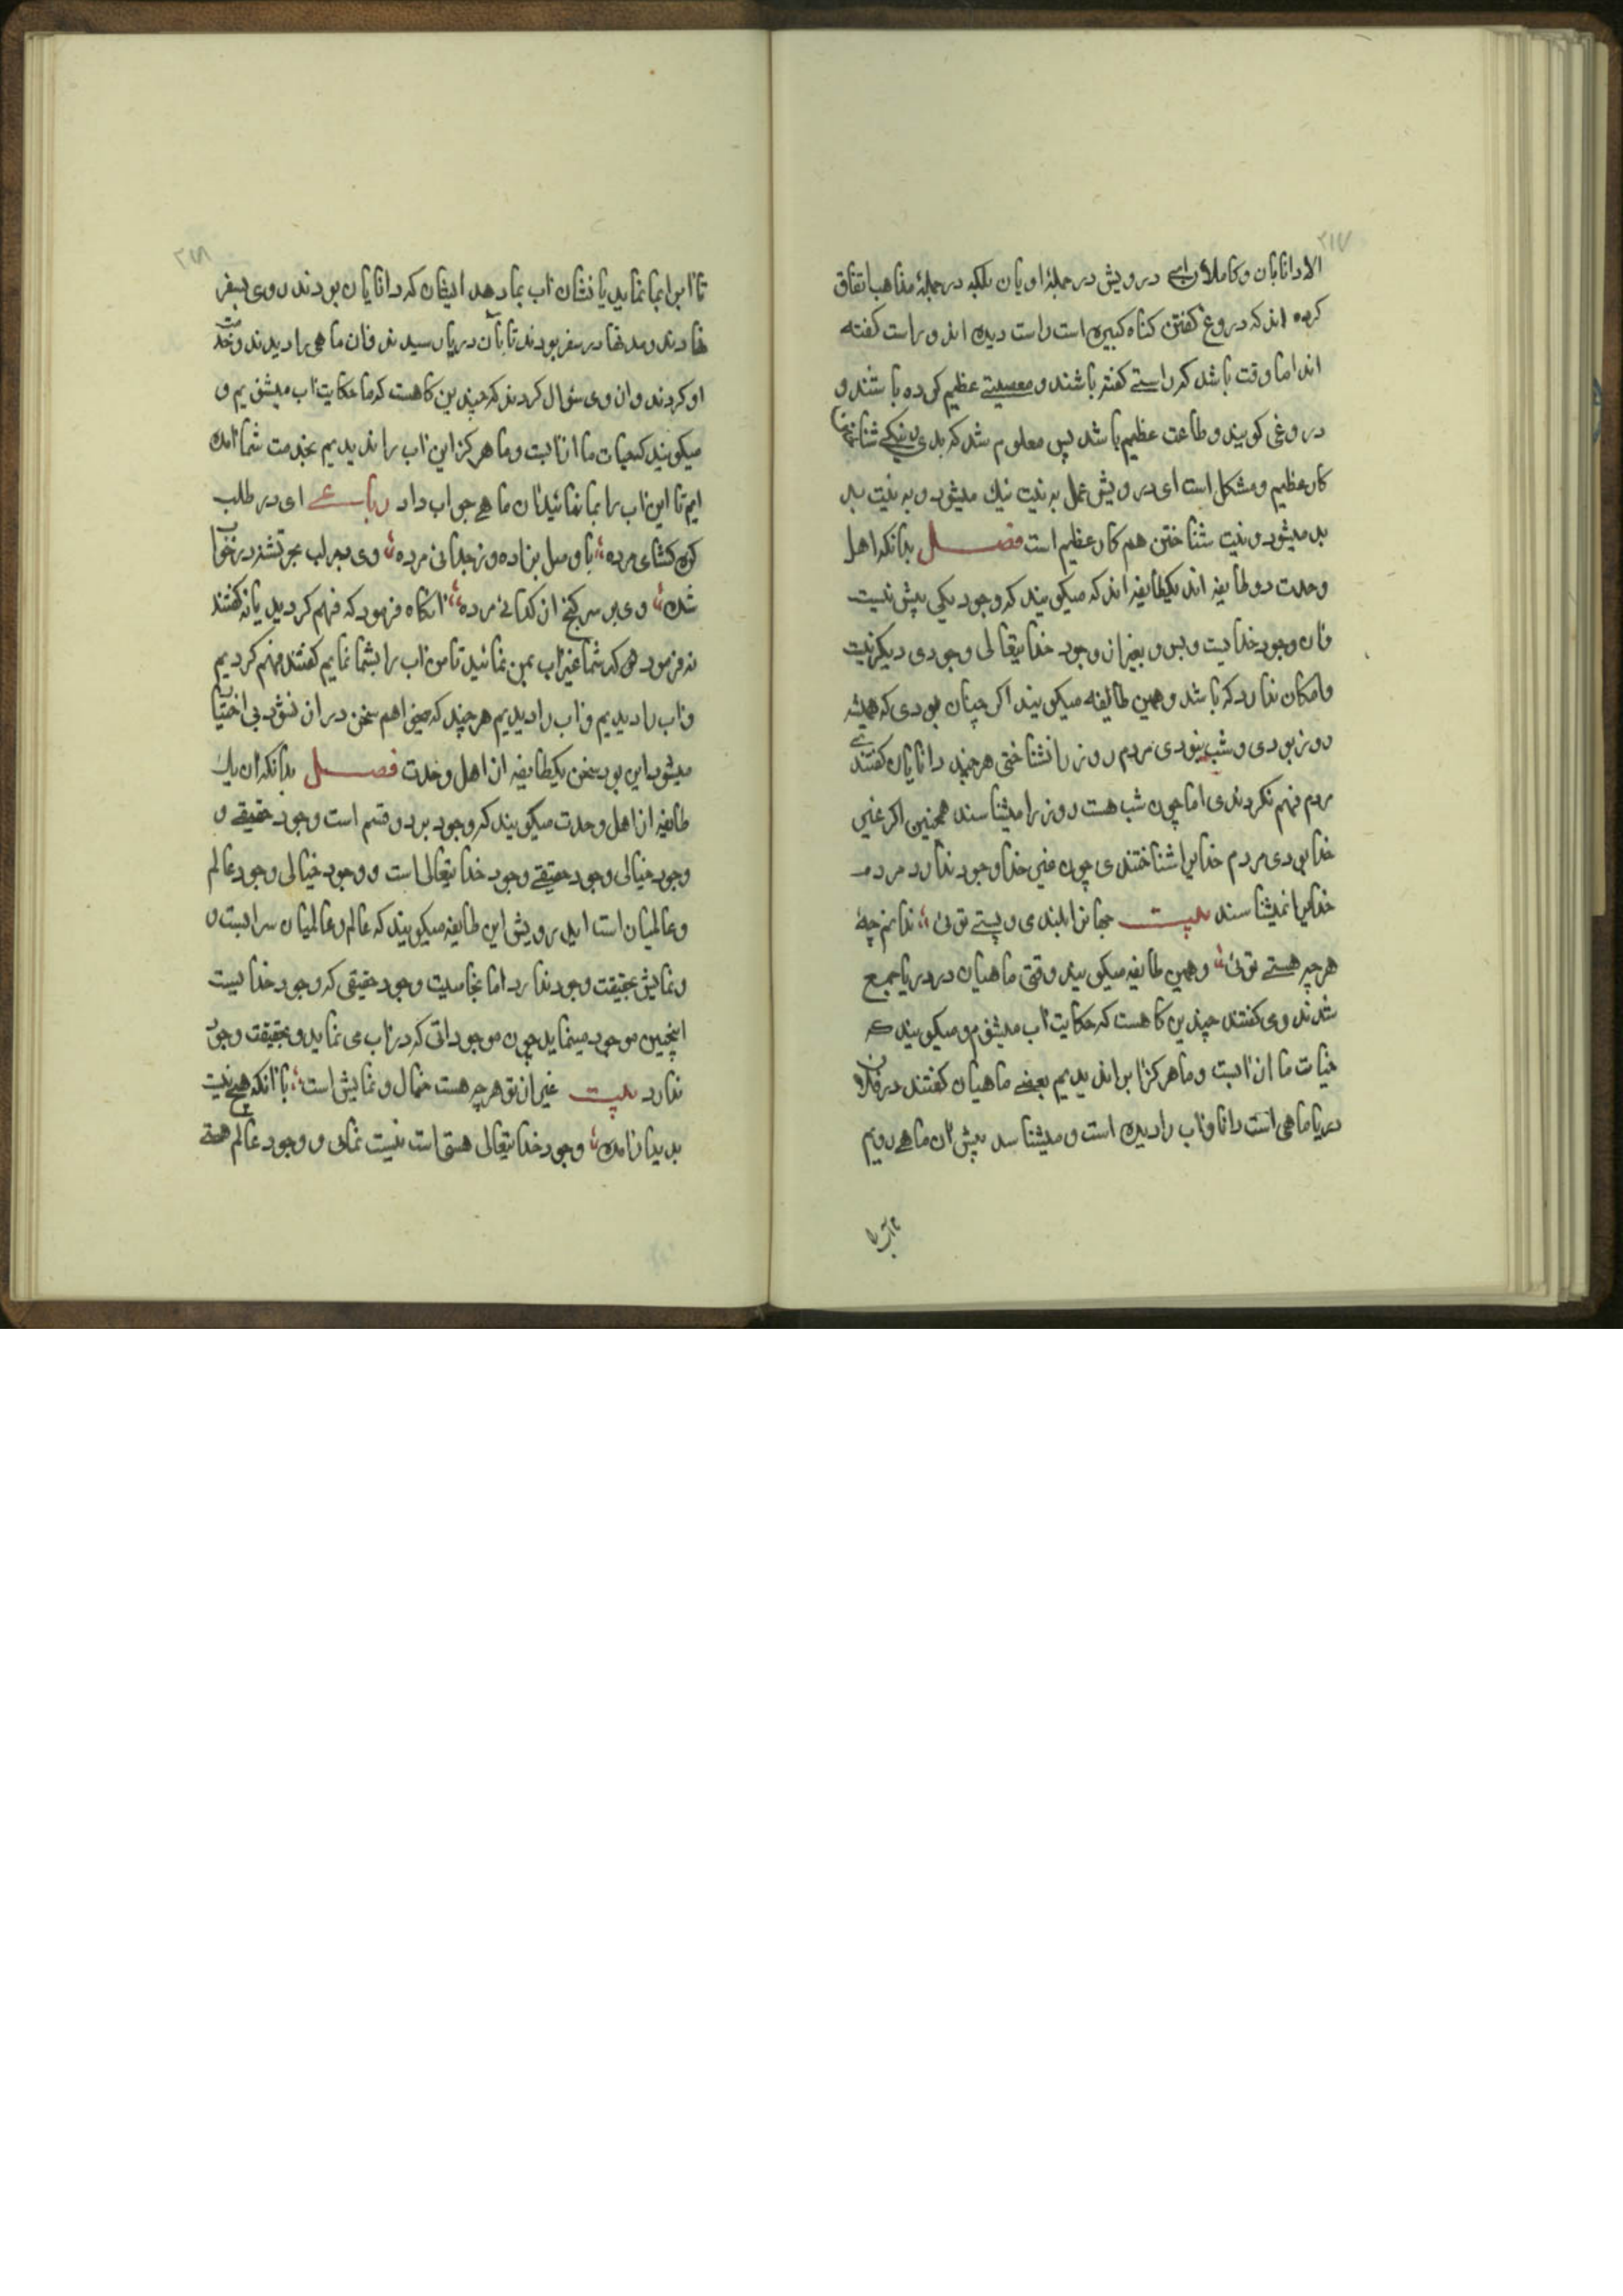 ۲۱۷
الا دانایان و کاملان ای درویش در جملهٔ ادیان بلکه در جملهٔ مذاهب اتفاق
کرده اند که دروغ کفتن کناه کبیره است راست دیده اند و راست کفته
اند اما وقت باشد که راستی کفته باشند و معصیتی عظیم کرده باشند و
دروغی کویند و طاعت عظیم باشد پس معلوم شد که بدی و نیکی شناختن
کار عظیم و مشکل است ای درویش عمل به نیت نیك میشود و به نیت بد
بد میشود و نیت شناختن هم کار عظیم است فصل بدانکه اهل
وحدت دو طایفه اند یکطایفه اند که میکویند که وجود یکی بیش نیست
وآن وجود خدایست و بس و بغیر از وجود خدایتعالی وجودی دیکر نیست
وامکان ندارد که باشد و همین طایفه میکویند اکر چنان بودی که همیشه
روز بودی و شب نبودی مردم روز را نشناختی هر چند دانایان کفتندی
مردم فهم نکردندی اما چون شب هست روز را میشناسند همچنین اکر غیر
خدا بودی مردم خدایرا شناختندی چون غیر خدا وجود ندارد مردم
خدایرا نمیشناسند بیت جهانرا بلندی و پستی توئی ندانم چهٔ
هر چه هستی توئی وهمین طایفه میکویند وقتی ماهیان در دریا جمع
شدند و می کفتند چندین کاهست که حکایت آب میشنوم و میکویند که
حیات ما از آبست و ما هرکز آبرا ندیدیم بعضی ماهیان کفتند در فلان
دریا ماهی است دانا و آب را دیده است و میشناسد پیش آن ماهی رویم
تا آب را
۲۱۸
تا آبرا بما نماید یا نشان آب بما دهد ایشان که دانایان بودند روی بسفر
نهادند و مدتها در سفر بودند تا بآن دریا رسیدند وآن ماهی را دیدند و خدمت
او کردند و از وی سؤال کردند که چندین کاهست که ما حکایت آب میشنویم و
میکویند که حیات ما از آبست و ما هرکز این آب را ندیدیم بخدمت شما آمده
ایم تا این آب را بما نمائید آن ماهی جواب داد رباعی ای در طلب
کره کشای مرده با وصل بزاده و ز جدائی مرده وی بر لب بحر تشنه در خواب
شده وی بر سر کنج از کدائی مرده آنکاه فرمود که فهم کردید یا نه کفتند
نه فرمود هر که شما غیر آب بمن نمائید تا من آب را بشما نمایم کفتند فهم کردیم
وآب را دیدیم وآب را دیدیم هر چند که میخواهم سخن دراز نشود بی اختیار
میشود این بود سخن یکطایفه از اهل وحدت فصل بدانکه آن یك
طایفه از اهل وحدت میکویند که وجود بر دو قسم است وجود حقیقی و
وجود خیالی وجود حقیقی وجود خدایتعالی است و وجود خیالی وجود عالم
وعالمیان است ایدرویش این طایفه میکویند که عالم و عالمیان سرابست و
ونمایش بحقیقت وجود ندارد اما بخاصیت وجود حقیقی که وجود خدایست
اینچنین موجود مینماید چون موجوداتی که در آب می نماید و بحقیقت وجود
ندارد بیت غیر از تو هر چه هست خیال و نمایش است با آنکه هیچ نیست
پدیدار آمده وجود خدایتعالی هستی است نیست نمای و وجود عالم همه